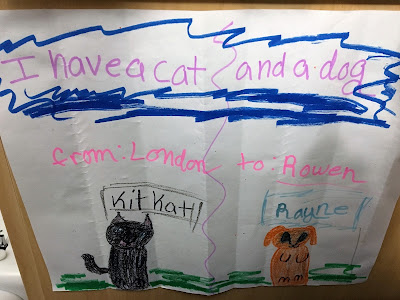 I have a cat and a dog
from: London to: Rowen
Kit Kat Rayne